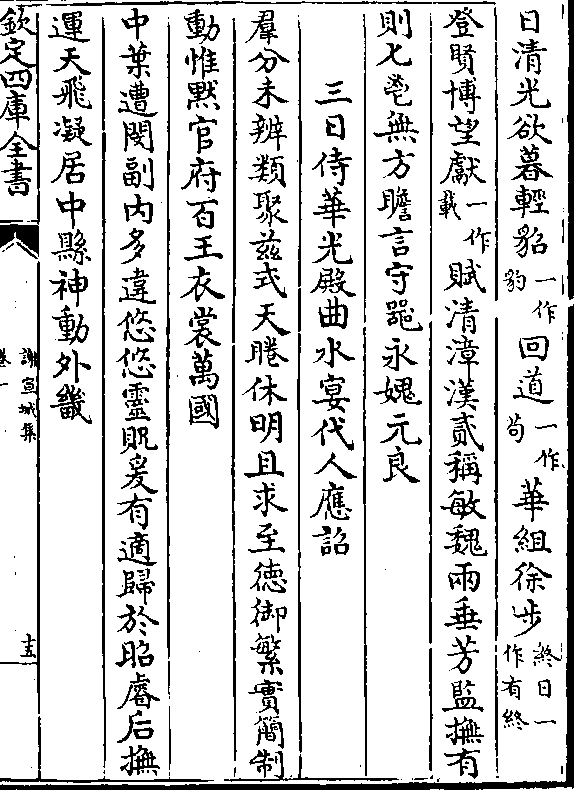 日清光欲暮輕貂一作豹回道一作苟華組徐步終日一作有終
登賢博望獻一作載賦清漳漢貳稱敏魏兩垂芳監撫有
則匕鬯無方瞻言守器永媿元良
三日侍華光殿曲水宴代人應詔
羣分未辨類聚兹式天睠休明且求至德御繁實簡制
動惟黙官府百王衣裳萬國
中葉遭閔副内多違悠悠靈貺爰有適歸於昭睿后撫
運天飛凝居中縣神動外畿
欽定四庫全書
謝宣城集
卷一